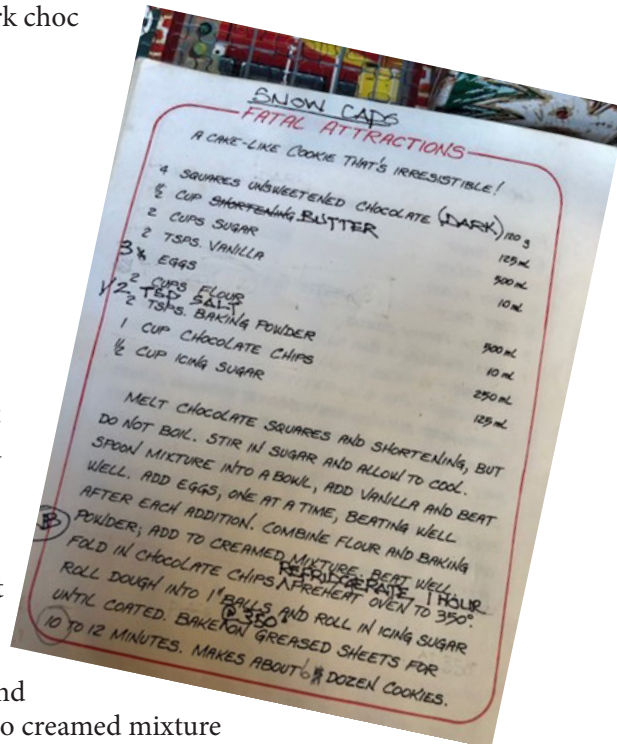 rk choc
SNOW CAPS
FATAL ATTRACTIONS
A CAKE-LIKE COOKIE THAT'S IRRESISTIBLE!
4 SQUARES UNSWEETENED CHOCOLATE (DARK) 120 g
½ CUP SHORTENING BUTTER 125 mL
2 CUPS SUGAR 500 mL
2 TSPS. VANILLA 10 mL
3 EGGS
2 CUPS FLOUR 500 mL
1/2 TSP SALT
2 TSPS. BAKING POWDER 10 mL
1 CUP CHOCOLATE CHIPS 250 mL
½ CUP ICING SUGAR 125 mL
MELT CHOCOLATE SQUARES AND SHORTENING, BUT
DO NOT BOIL. STIR IN SUGAR AND ALLOW TO COOL.
SPOON MIXTURE INTO A BOWL, ADD VANILLA AND BEAT
WELL. ADD EGGS, ONE AT A TIME, BEATING WELL
AFTER EACH ADDITION. COMBINE FLOUR AND BAKING
B POWDER; ADD TO CREAMED MIXTURE. BEAT WELL.
REFRIDGERATE 1 HOUR
FOLD IN CHOCOLATE CHIPS. PREHEAT OVEN TO 350°.
ROLL DOUGH INTO 1" BALLS AND ROLL IN ICING SUGAR
@ 350°
UNTIL COATED. BAKE ON GREASED SHEETS FOR
10 TO 12 MINUTES. MAKES ABOUT 6 DOZEN COOKIES.
nd
o creamed mixture